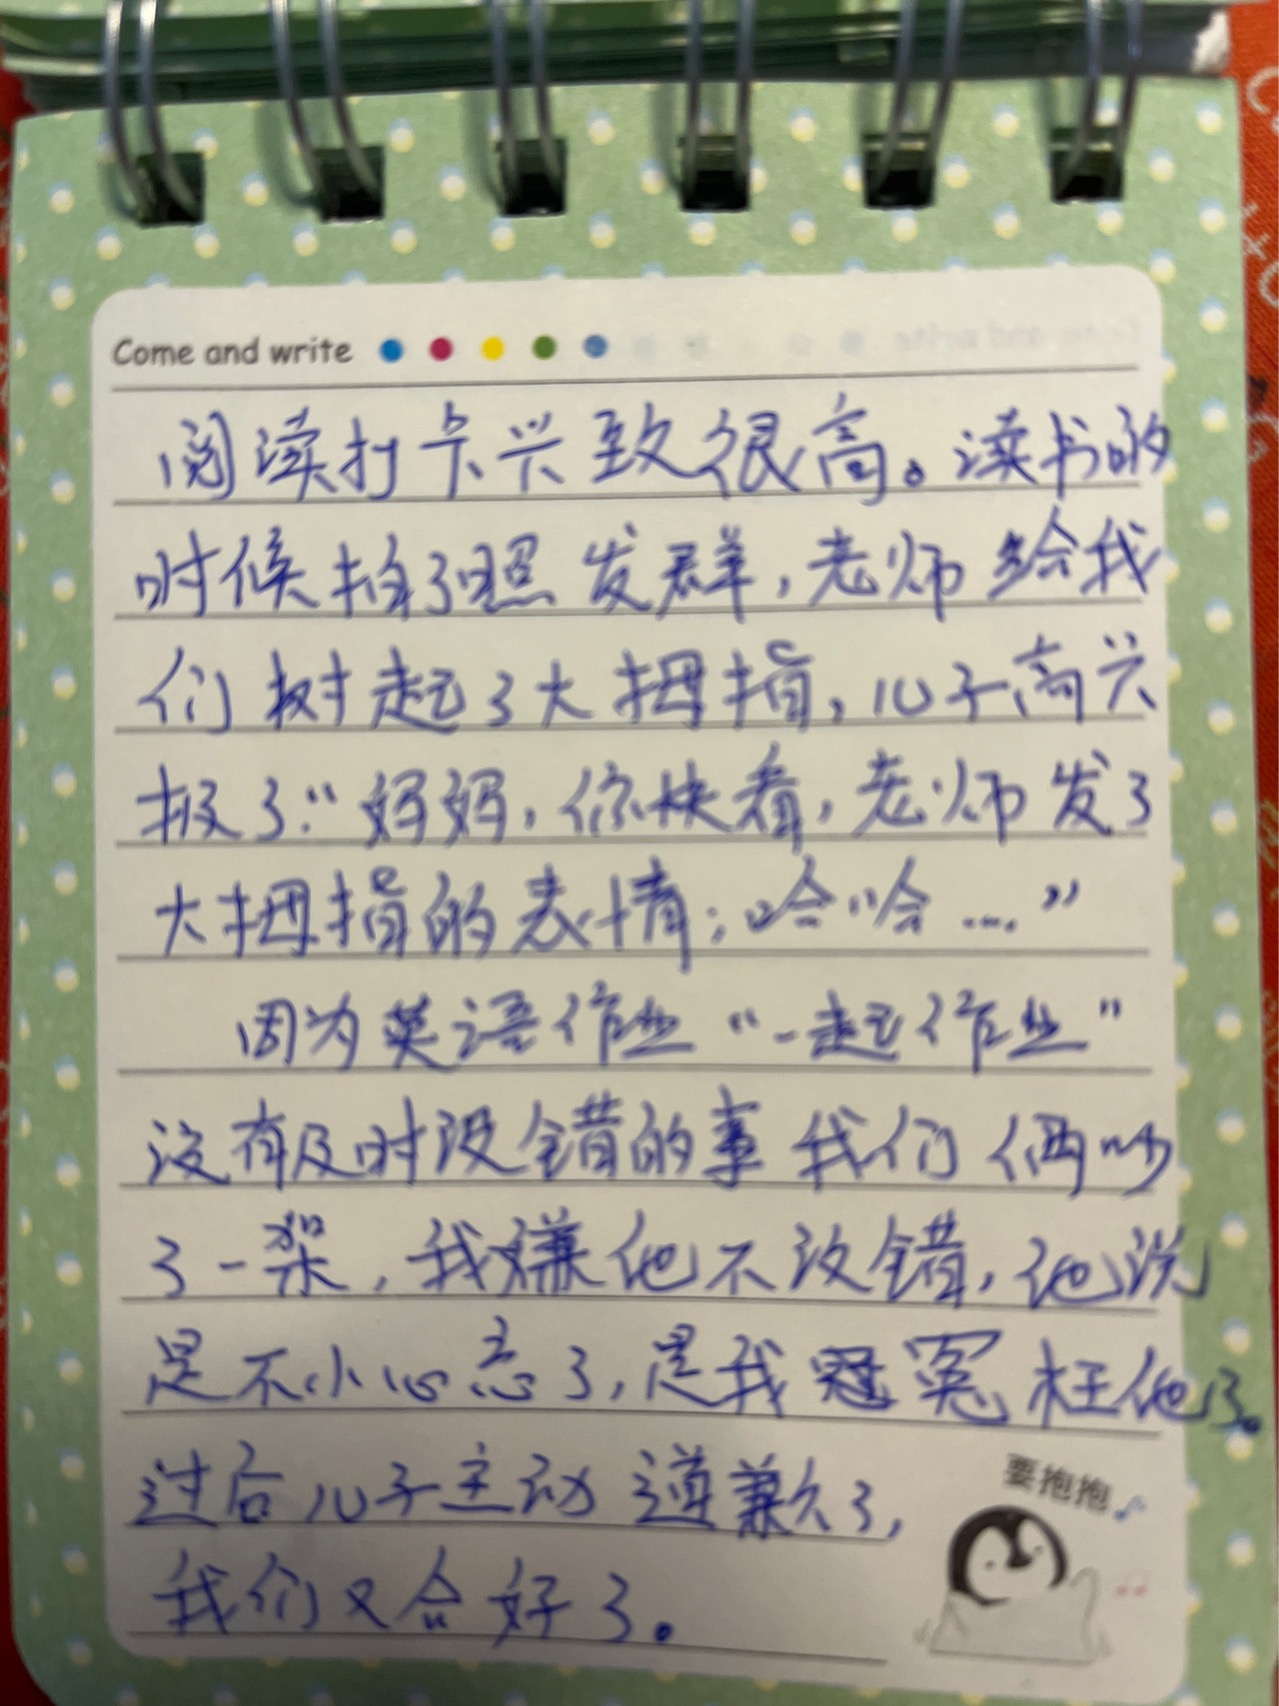 Come and write
阅读打卡兴致很高。读书的
时候拍了照发群,老师给我
们树起了大拇指,儿子高兴
极了:“妈妈,你快看,老师发了
大拇指的表情;哈哈....”
因为英语作业“一起作业”
没有及时改错的事我们俩吵
了一架,我嫌他不改错,他说
是不小心忘了,是我冤枉他了。
过后儿子主动道歉了,
我们又合好了。
要抱抱